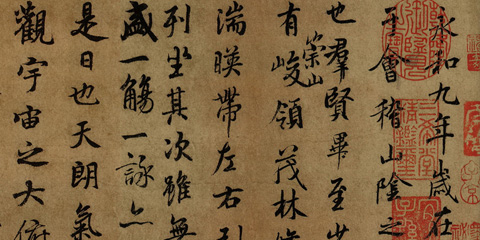 永和九年歲在
于會稽山陰之
也羣賢畢至少
崇山
有峻領茂林脩
湍暎帶左右引
列坐其次雖無
盛一觴一詠亦
是日也天朗氣
觀宇宙之大俯